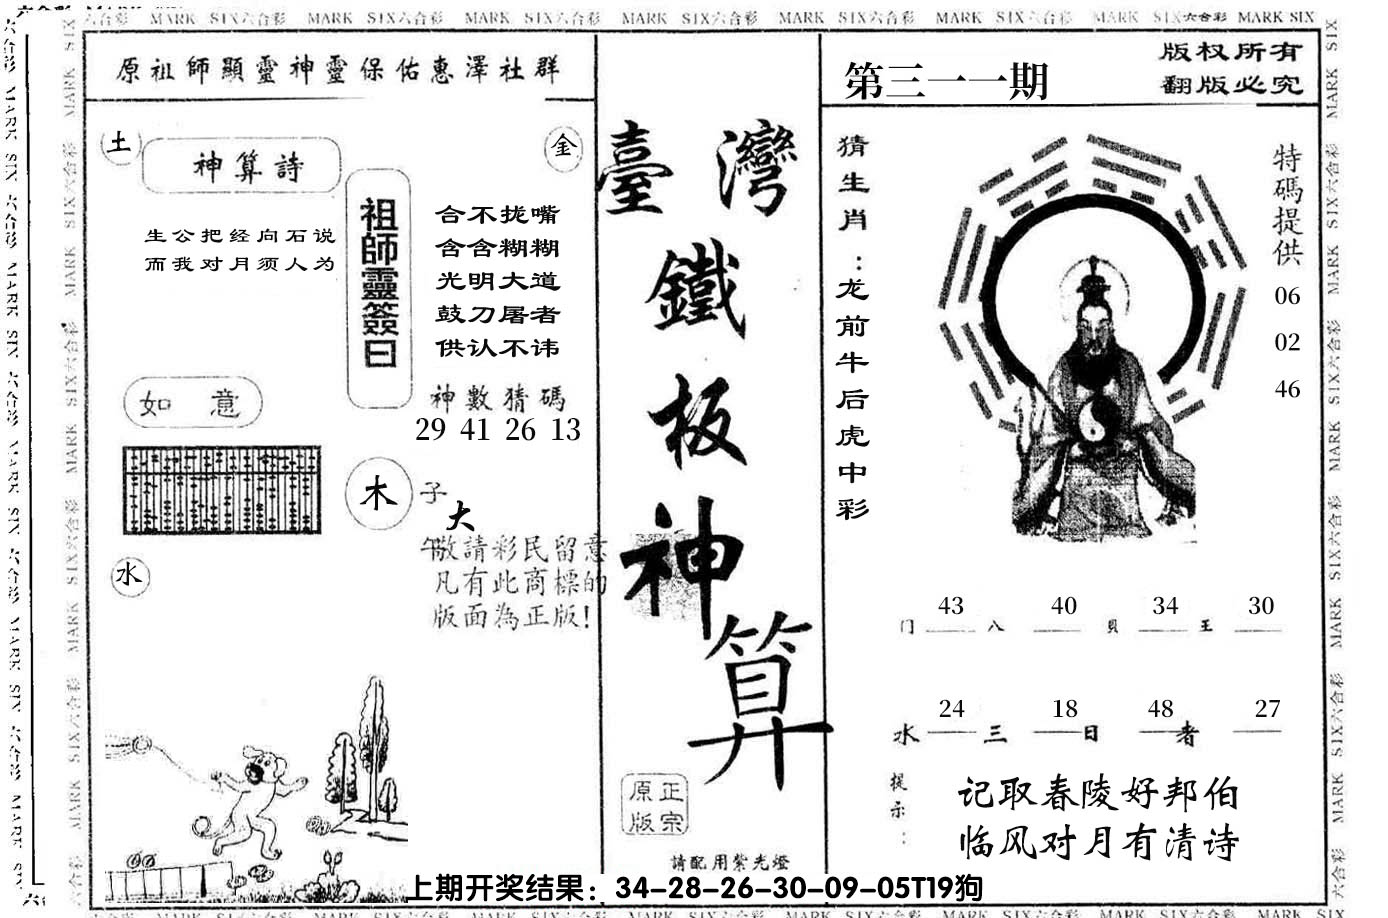 六合彩 MARK SIX六合彩 MARK SIX六合彩 MARK SIX六合彩 MARK SIX六合彩 MARK SIX六合彩 MARK SIX六合彩 MARK SIX六合彩 MARK SIX
原祖師顯靈神靈保佑惠澤社群
土
神算詩
金
生公把经向石说
而我对月须人为
祖師靈簽曰
合不拢嘴
含含糊糊
光明大道
鼓刀屠者
供认不讳
神數猜碼
29 41 26 13
如 意
木
子
大
午
敬請彩民留意
凡有此商標的
版面為正版!
水
臺灣
鐵
板
神
算
原正
版宗
請配用紫光燈
第三一一期
版权所有
翻版必究
猜生肖:龙前牛后虎中彩
特碼提供
06
02
46
43 40 34 30
门 八 貝 王
24 18 48 27
水 三 日 者
提示:
记取春陵好邦伯
临风对月有清诗
上期开奖结果：34-28-26-30-09-05T19狗